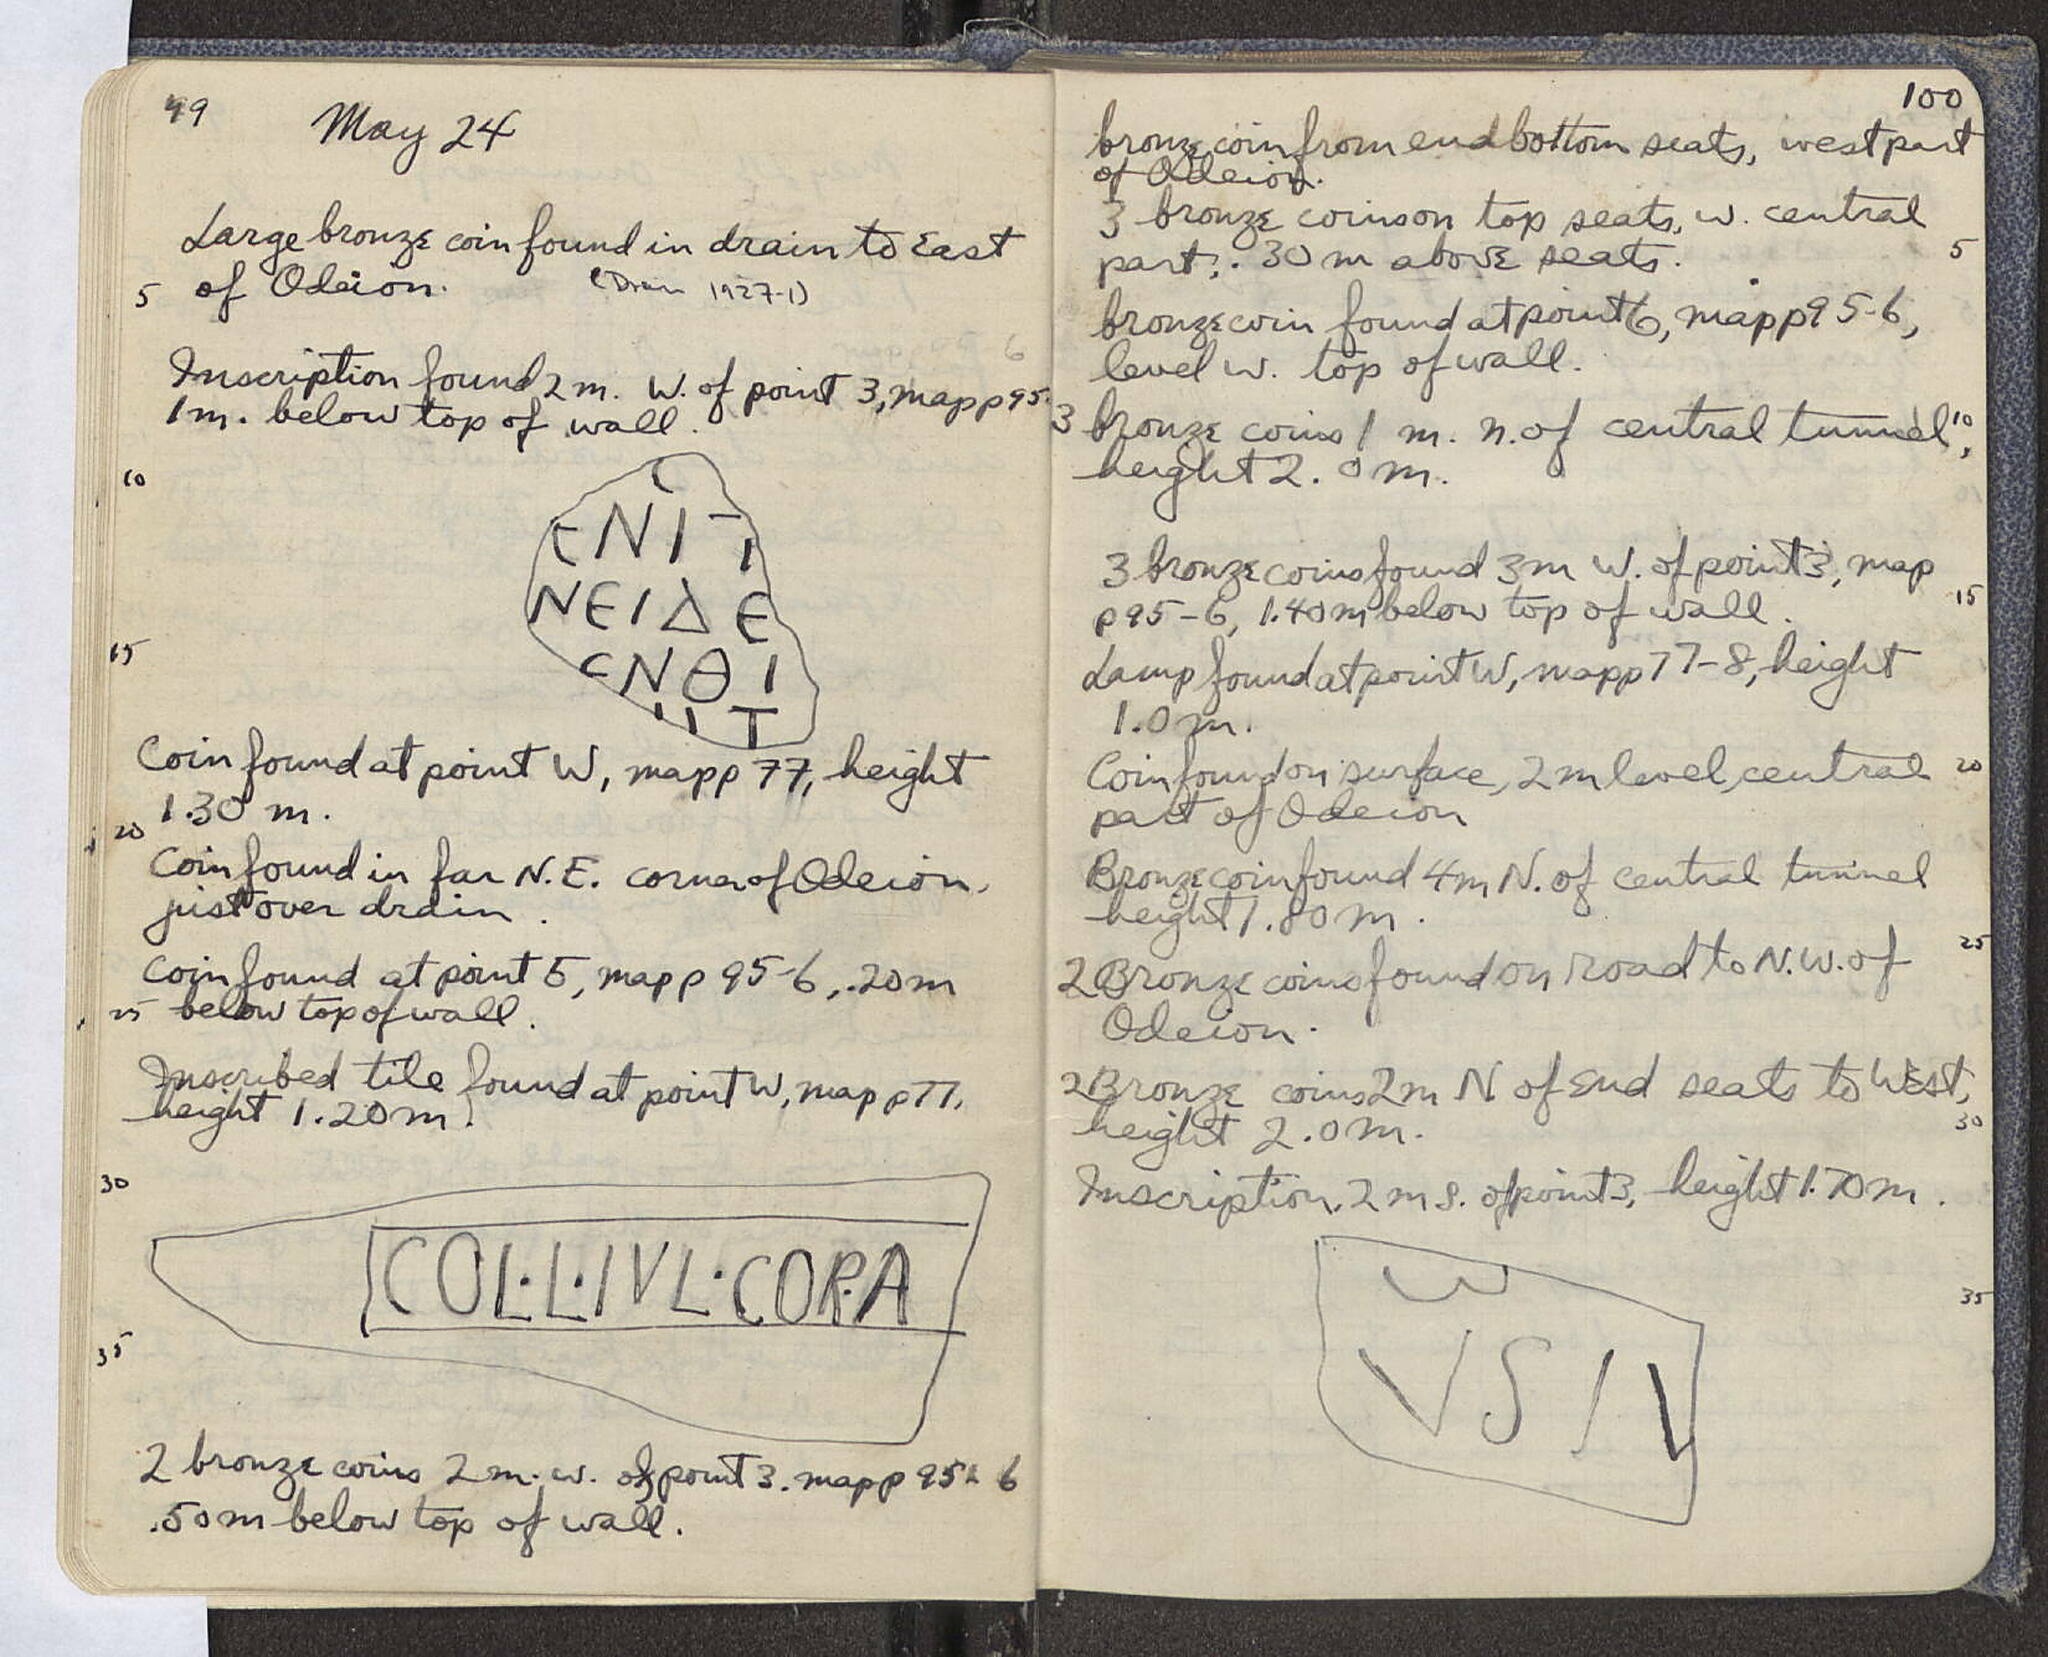 99
May 24
Large bronze coin found in drain to East
5 of Odeion. (Drain 1927-1)
Inscription found 2 m. W. of point 3, map p 95-
1 m. below top of wall.
10
ϹΝΙΤ
ΝΕΙΔΕ
15
ϹΝΘΙ
Τ
Coin found at point W, map p 77, height
1.30 m.
20
Coin found in far N.E. corner of Odeion,
just over drain.
Coin found at point 5, map p 95-6, .20 m
25 below top of wall.
Inscribed tile found at point W, map p 77,
height 1.20 m.
30
COL·L·IVL·COR·A
35
2 bronze coins 2 m. w. of point 3. map p 95-6
.50 m below top of wall.
100
bronze coin from end bottom seats, west part
of Odeion.
3 bronze coins on top seats, w. central
part, .30 m above seats. 5
bronze coin found at point 6, map p 95-6,
level w. top of wall.
3 bronze coins 1 m. n. of central tunnel, 10
height 2.0 m.
3 bronze coins found 3 m W. of point 3, map
p 95-6, 1.40 m below top of wall. 15
Lamp found at point W, map p 77-8, height
1.0 m.
Coin found on surface, 2 m level, central 20
part of Odeion
Bronze coin found 4 m N. of central tunnel
height 1.80 m.
2 Bronze coins found on road to N.W. of 25
Odeion.
2 Bronze coins 2 m N of End seats to West,
height 2.0 m. 30
Inscription, 2 m s. of point 3, height 1.70 m.
35
VSIV